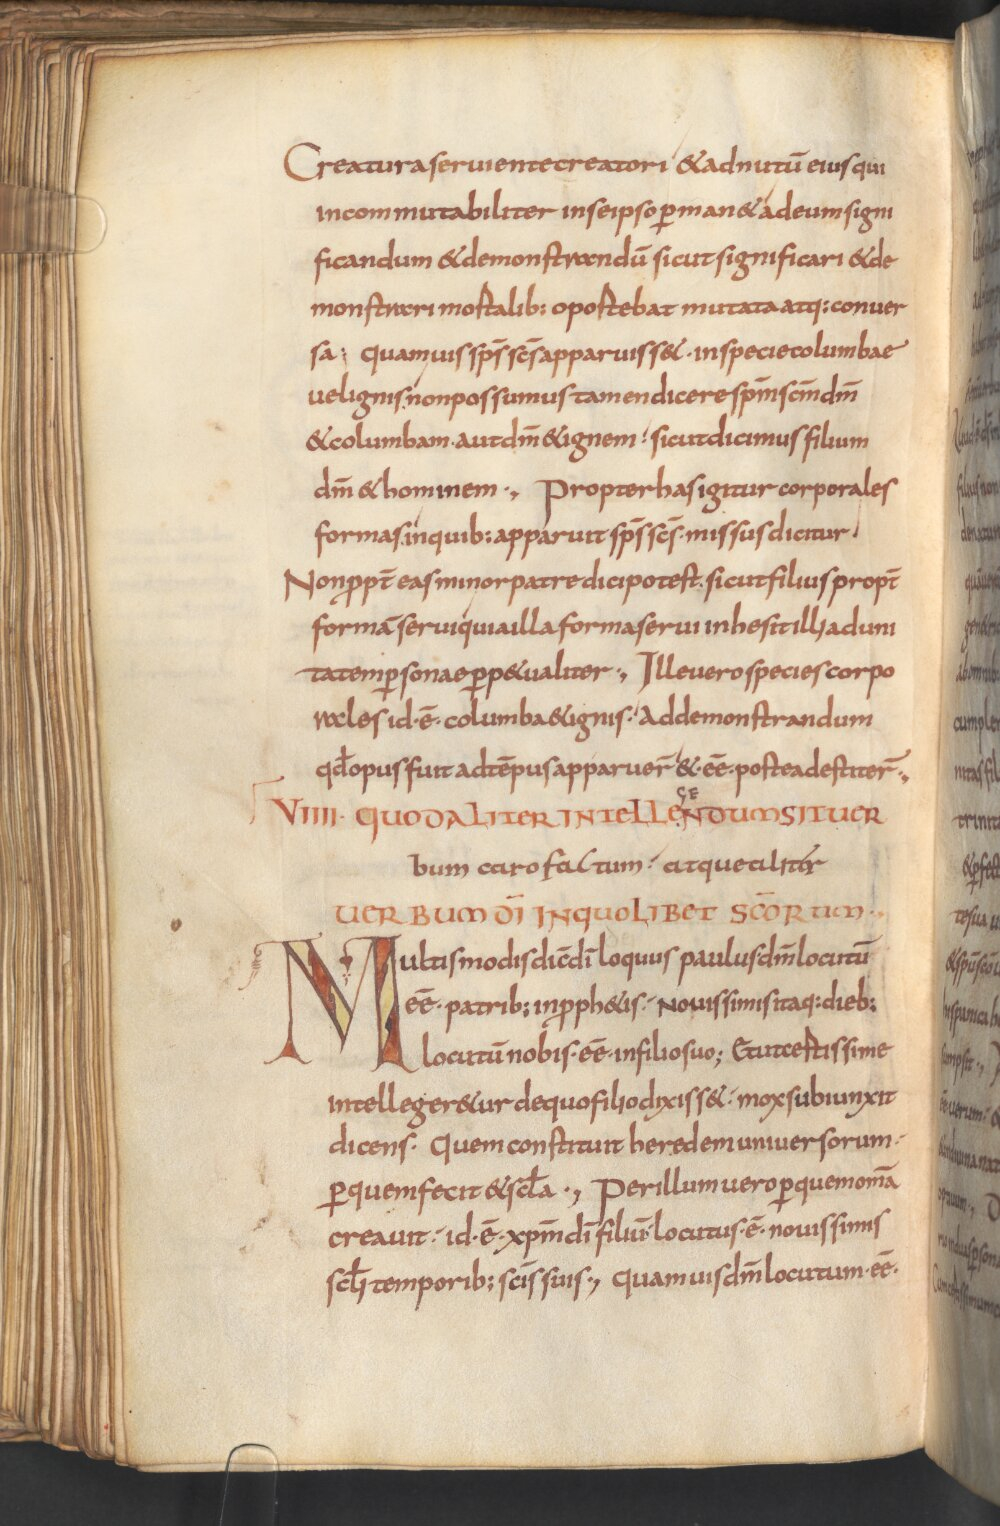 Creatura seruiente creatori &adnutū eius qui
incommutabiliter inseipso ꝑman& adeum signi
ficandum &demonstrandū sicut significari &de
monstrari mostalib: oportebat mutata atq: conuer
sa; quamuis sp̄s sc̄s apparuiss&· inspecie columbae
uel ignis. non possumus tamen dicere sp̄m sc̄m dm̄
&columbam· aut dm̄ &ignem· sicut dicimus filium
dm̄ &hominem·, Propter has igitur corporales
formas. inquib: apparuit sp̄s sc̄s· missus dicitur.
Non ꝓpt̄ eas minor patre dici potest. sicut filius propt̄
formā serui quia illa forma serui inhesit illi ad uni
tatem ꝑsonae ꝑp&ualiter·, Ille uero species corpo
rales id·ē· columba &ignis· Addemonstrandum
qd̄ opus fuit ad tēpus apparuer̄ &·eē· postea destiter̄·,
VIIII· QUOD ALITER INTELLEGENDUM SIT UER
bum caro factum· atque aliter
UERBUM DĪ IN QUOLIBET SC̄ORUM·,
Multis modis dic̄ dī loquus paulus dm̄ locutū
eē· patrib: inꝓph&is· Nouissimis itaq: dieb:
locutū nobis·eē· infilio suo; Et ut certissime
intelleger&ur dequo filio dixiss&· mox subiunxit
dicens· Quem constituit heredem uniuersorum·
ꝑquem fecit &scl̄a·, Per illum uero ꝑquem om̄a
creauit· id·ē· xpm̄ dī filiū· locutus·ē· nouissimis
scl̄i temporib: sc̄is suis·, quamuis dm̄ locutum·eē·